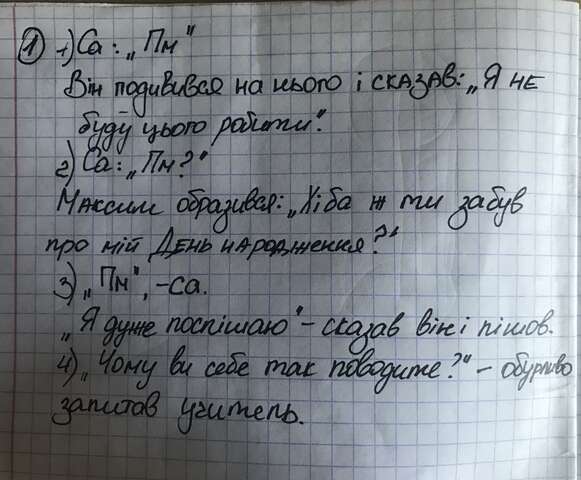 1 1) Са: „Пм"
Він подивився на нього і сказав: „Я не
буду цього робити".
2) Са: „Пм?"
Максим образився: „Хіба ж ти забув
про мій День народження?"
3) „Пм", -са.
„Я дуже поспішаю" - сказав він і пішов.
4) „Чому ви себе так поводите?" - обурливо
запитав учитель.